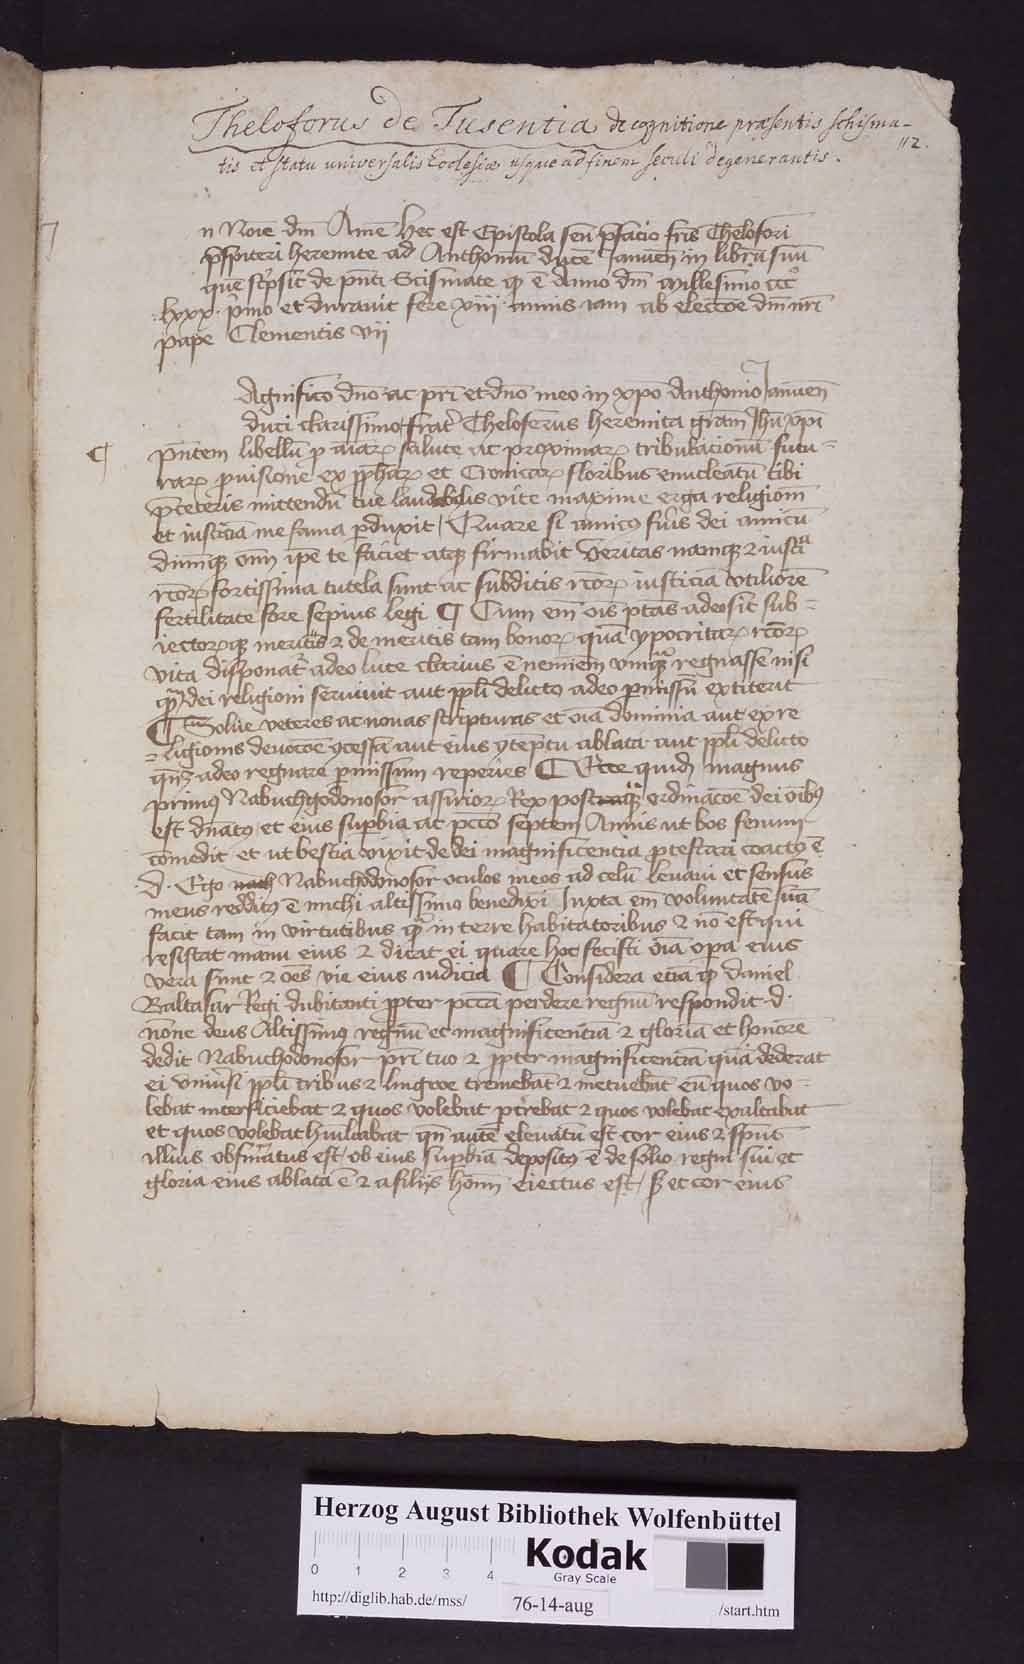 Theloforus de Fusentia de cognitione præsentis schisma-
112.
tis et statu universalis Ecclesiæ usque ad finem seculi degenerantis.
n Noīe dnī Amē hec est Epistola seu p̄facio frīs Thelofori
p̄sp̄iteri heremite ad Anthoniū ducē Januen̄ in librū suū
quē sc̓psit de pn̄ti Scismate q̄ ē Anno dnī Millesimo ccc°
lxxx· p̓mo et durauit fere xiii annis iam ab elecc̄oe dnī nr̄i
pape Clementis vii
Agnifico dn̄o ac pr̄i et dn̄o meo in xp̄o Anthonio Januen̄
duci clarissimo frat̓ Theloferus heremita grām Jhū xp̄i
¶ pn̄tem libellū p aīarꝝ salute ac proximarꝝ tribulacionū futu-
rarꝝ p̱uisione ex pp̄hīarꝝ et Cronicarꝝ floribus enucleatū tibi
p̄ ceteris mittendū tue laudabilis vite maxime erga religiōm
et iusticīa me fama p̱duxit / Quare si amicꝰ fueris dei amicū
diuinūqꝫ ipe te faciet atqꝫ firmabit Veritas namqꝫ ⁊ iusticia
rcōrꝝ fortissima tutela sunt ac subditis rcōrꝝ iusticiā vtiliorē
fertilitate fore sepius legi ¶ Cum em̄ oīs ptās a deo sit sub-
iectorꝝqꝫ meritis ⁊ de meritis tam bonorꝝ quā ypocritarꝝ rcōrꝝ
vita disponat̓ adeo luce clarius ē neminem vnqꝫ regnasse nisi
dei religioni seruiuit aut pp̄li delictꝰ a deo p̱missū extiterit
¶ Reuolue veteres ac nouas scripturas et oīa dominia aut ex re-
ligionis deuocōe ꝯcessa aut eius ꝯtēptu ablata aut pp̄li delicto
adeo regnare p̱missum reperies ¶ Ecce quidē magnus
primꝰ Nabuchgodonosor assiriorꝝ Rex postqꝫ ordinacōe dei oībꝰ
est dn̄atꝰ et eius sup̱bia ac pccō septem Annis ut bos fenum
cōmedit et ut bestia vixit de dei magnificencia p̱testari coactꝰ ē
·d· Ego nach Nabuchodonosor oculos meos ad celū leuaui et sensus
meus redditꝰ ē michi altissimo benedixi Iuxta em̄ voluntatē suā
facit tam in virtutibus qꝫ in terre habitatoribus ⁊ nō est qui
resistat manu eius ⁊ dicat ei quare hoc fecisti oīa opa eius
vera sunt ⁊ oēs vie eius iudicia ¶ Considera eciā qꝫ daniel
Baltasar Regi dubitanti pp̱ter pccā perdere regnū respondit ·d·
nōne deus Altissimꝰ regnū et magnificenciā ⁊ gloriā et honorē
dedit Nabuchodonosor pr̄i tuo ⁊ pp̱ter magnificenciā quā dederat
ei vniūsi pp̄li tribus ⁊ lingwe tremebāt ⁊ metuebāt eū quos vo-
lebat interficiebat ⁊ quos volebat p̱cūciebat ⁊ quos volebat exaltabat
et quos volebat humiliabat qn̄ autē eleuatū est cor eius ⁊ spūs
illius obfirmatus est / ob eius sup̱biā depositꝰ ē de solio regni sui et
gloria eius ablata ē ⁊ a filijs hoīm eiectus est / sꝫ et cor eius
Herzog August Bibliothek Wolfenbüttel
0 1 2 3 4
Kodak
Gray Scale
http://diglib.hab.de/mss/
76-14-aug
/start.htm